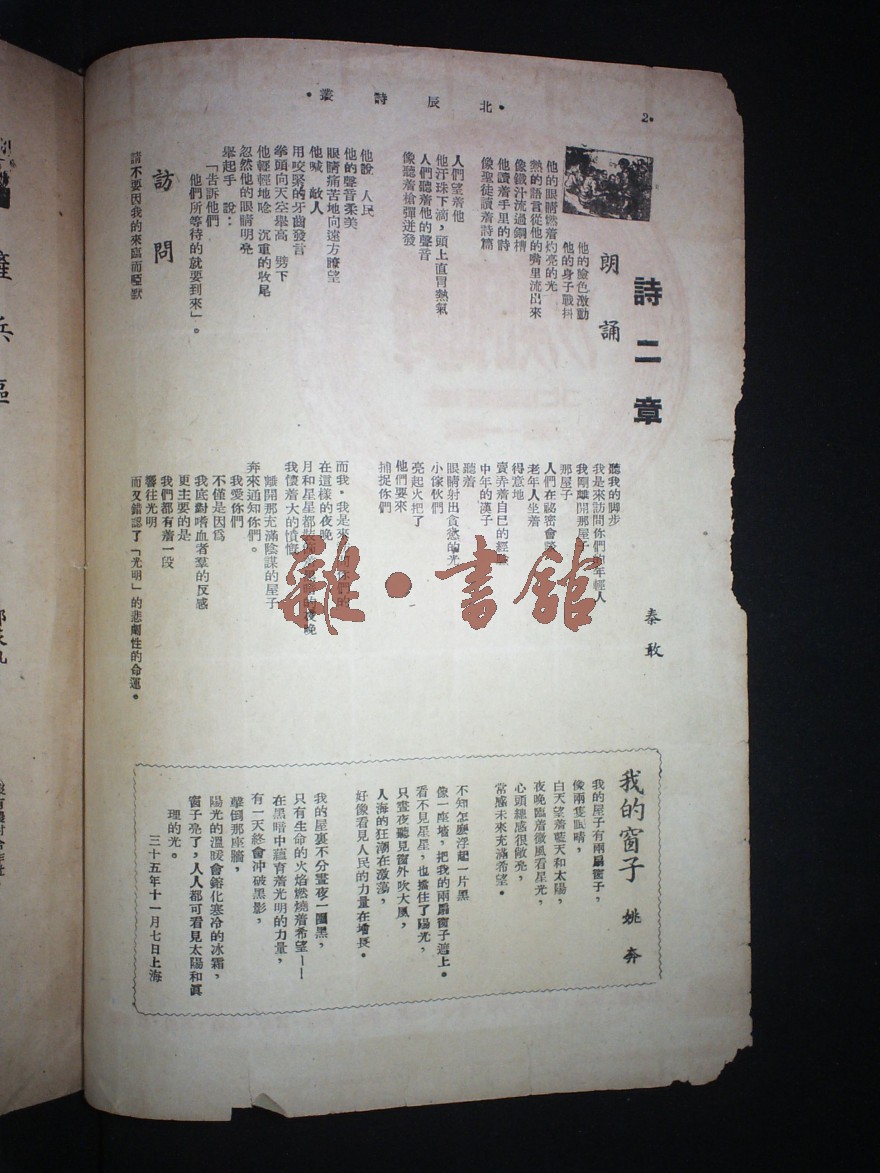 2●
●北辰詩叢●
詩二章
秦敢
朗誦
他的臉色激動
他的身子戰抖
他的眼睛燃着灼亮的光
熱的語言從他的嘴里流出來
像鐵汁流過鋼槽
他讀着手里的詩
像聖徒讀着詩篇
人們望着他
他汗珠下滴，頭上直冒熱氣
人們聽着他的聲音
像聽着槍彈迸發
他說 人民
他的聲音柔美
眼睛痛苦地向遠方瞭望
他喊 敵人
用咬緊的牙齒發言
拳頭向天空舉高 劈下
他輕輕地唸 沉重的收尾
忽然他的眼睛明亮
舉起手 說：
「告訴他們
他們所等待的就要到來」。
訪問
請不要因我的來臨而啞默
聽我的脚步
我是來訪問你們的年輕人
我剛離開那屋子
那屋子
人們在祕密會
老年人坐着
得意地
賣弄着自已的經
中年的漢子
聽着
眼睛射出貪慾的光
小傢伙們
亮起火把了
他們要來
捕捉你們
而我，我是來
在這樣的夜晚
月和星星都
我懷着大的憤慨
離開那充滿陰謀的屋子
奔來通知你們。
我愛你們
不僅是因爲
我底對嗜血者羣的反感
更主要的是
我們都有着一段
嚮往光明
而又錯認了「光明」的悲劇性的命運。
我的窗子
姚奔
我的屋子有兩扇窗子，
像兩隻眼睛，
白天望着藍天和太陽，
夜晚臨着微風看星光，
心頭總感很敞亮，
常感未來充滿希望。
不知怎麼浮起一片黑
像一座墻，把我的兩扇窗子遮上。
看不見星星，也擋住了陽光，
只晝夜聽見窗外吹大風，
人海的狂潮在激蕩，
好像看見人民的力量在增長。
我的屋裏不分晝夜一團黑，
只有生命的火焰燃燒着希望——
在黑暗中蘊育着光明的力量，
有一天終會冲破黑影，
擊倒那座牆，
陽光的溫暖會鎔化寒冷的冰霜，
窗子亮了，人人都可看見太陽和眞
理的光。
三十五年十一月七日上海
雜·書館